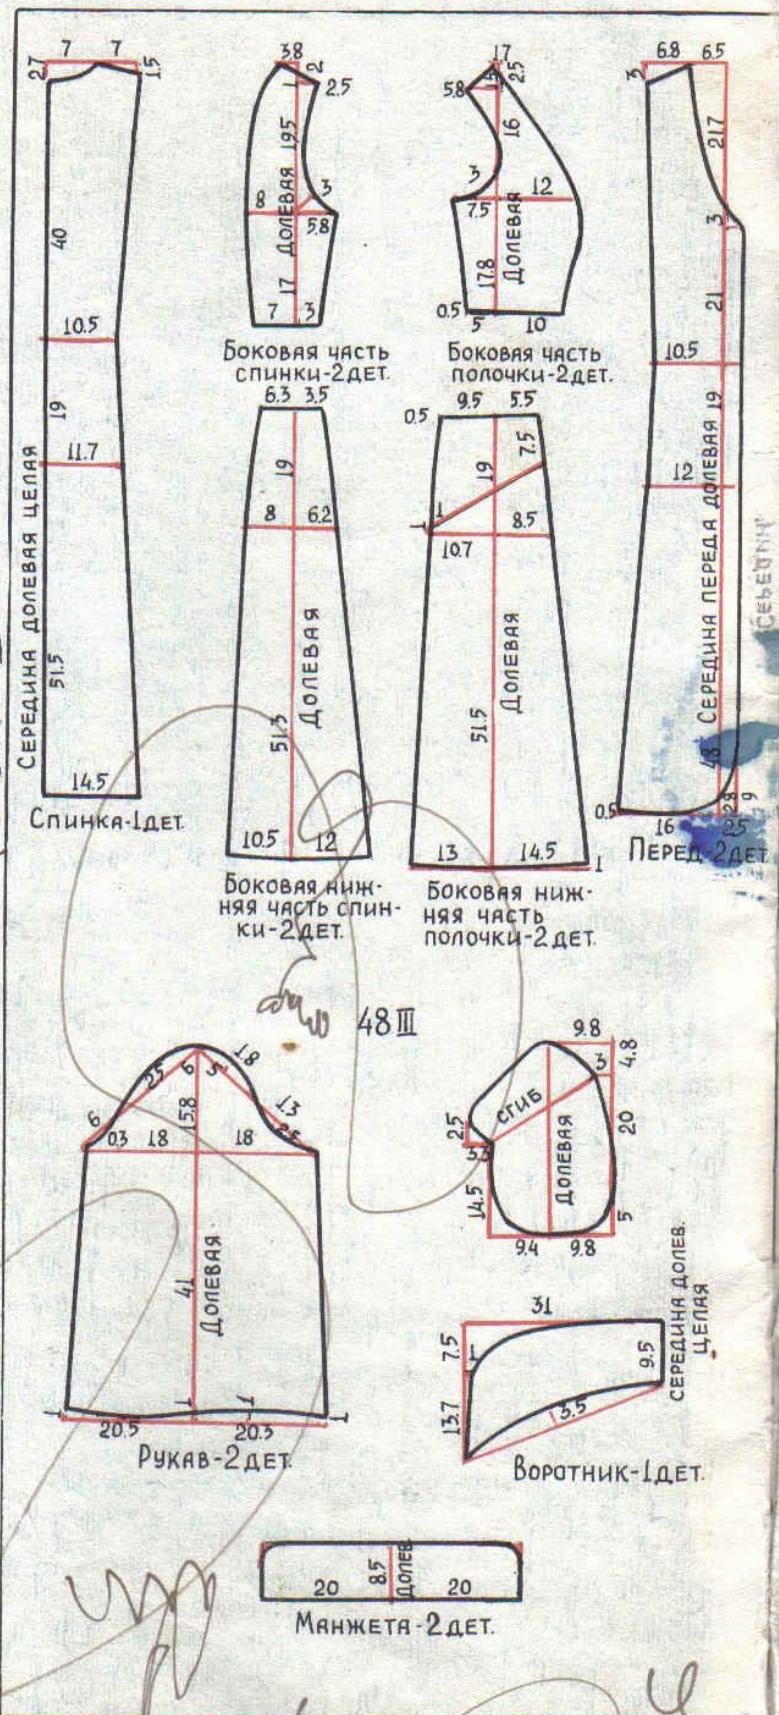 7 7
2.7 1.5
40
10.5
19
11.7
51.5
14.5
СЕРЕДИНА ДОЛЕВАЯ ЦЕЛАЯ
СПИНКА-1ДЕТ.
3.8
2
1 2.5
19.5
ДОЛЕВАЯ
3
8
5.8
17
7 3
БОКОВАЯ ЧАСТЬ
СПИНКИ-2ДЕТ.
17
2.5
5.8
16
3
12
7.5
ДОЛЕВАЯ
17.8
0.5
5 10
БОКОВАЯ ЧАСТЬ
ПОЛОЧКИ-2ДЕТ.
6.8 6.5
3
21.7
3
21
10.5
19
12
СЕРЕДИНА ПЕРЕДА ДОЛЕВАЯ
48
0.5
2.8 9
16 2.5
ПЕРЕД-2ДЕТ
6.3 3.5
19
8 6.2
ДОЛЕВАЯ
51.3
10.5 12
БОКОВАЯ НИЖ-
НЯЯ ЧАСТЬ СПИН-
КИ-2ДЕТ.
0.5
9.5 5.5
7.5
19
1
1
8.5
10.7
ДОЛЕВАЯ
51.5
13 14.5
1
БОКОВАЯ НИЖ-
НЯЯ ЧАСТЬ
ПОЛОЧКИ-2ДЕТ.
48 III
1.8
2.5 6 5
6
15.8
1.3
2.5
0.3 18 18
41
ДОЛЕВАЯ
1 1 1 1
20.5 20.3
РУКАВ-2ДЕТ.
9.8
4.8
3
СГИБ
2.5
20
ДОЛЕВАЯ
14.5
5
9.4 9.8
31
7.5
1
9.5
13.7
3.5
СЕРЕДИНА ДОЛЕВ.
ЦЕЛАЯ
ВОРОТНИК-1ДЕТ.
8.5
ДОЛЕВ.
20 20
МАНЖЕТА-2ДЕТ.